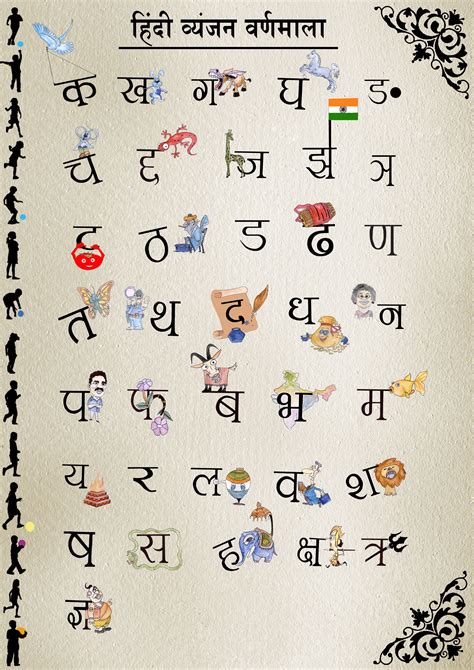 हिंदी व्यंजन वर्णमाला
क ख ग घ ङ
च छ ज झ ञ
ट ठ ड ढ ण
त थ द ध न
प फ ब भ म
य र ल व श
ष स ह क्ष त्र
ज्ञ